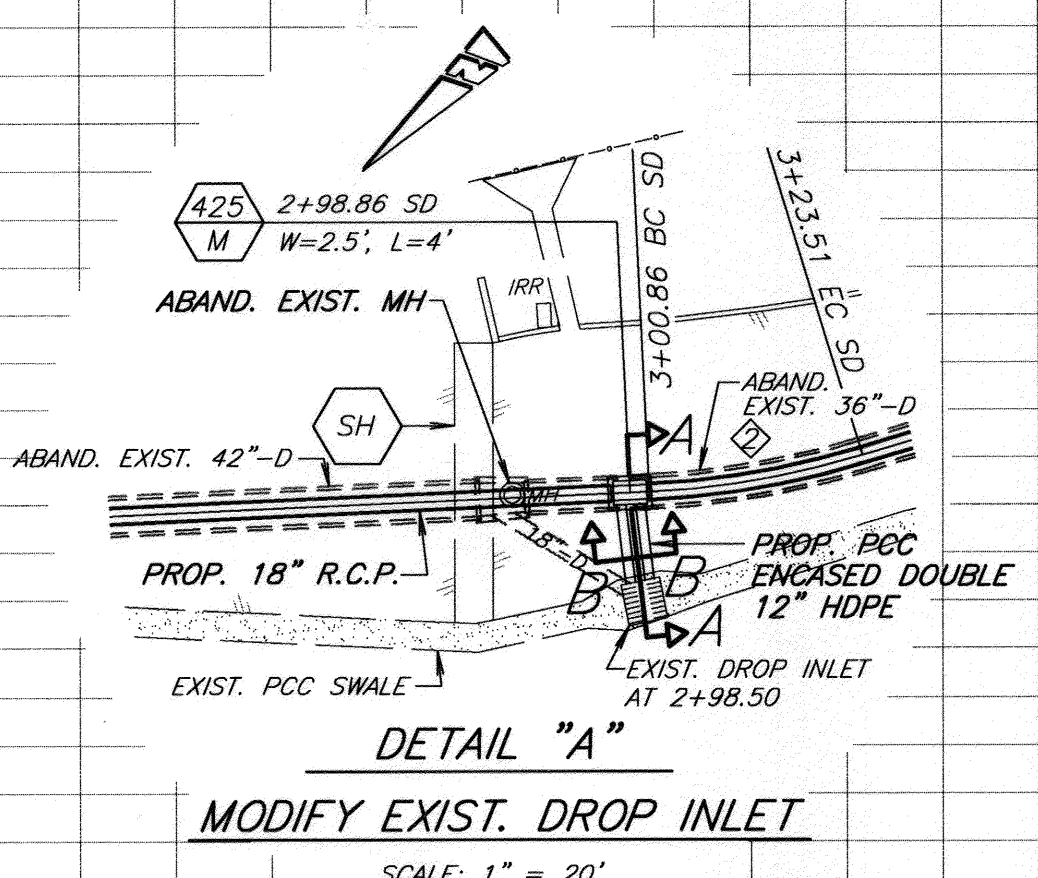 N
425 2+98.86 SD
M W=2.5', L=4'
ABAND. EXIST. MH
IRR
3+00.86 BC SD
3+23.51 EC SD
SH
ABAND. EXIST. 42"-D
ABAND.
EXIST. 36"-D
2
A
MH
18"-D
PROP. 18" R.C.P.
B
B
PROP. PCC
ENCASED DOUBLE
12" HDPE
A
EXIST. PCC SWALE
EXIST. DROP INLET
AT 2+98.50
DETAIL "A"
MODIFY EXIST. DROP INLET
SCALE: 1" = 20'